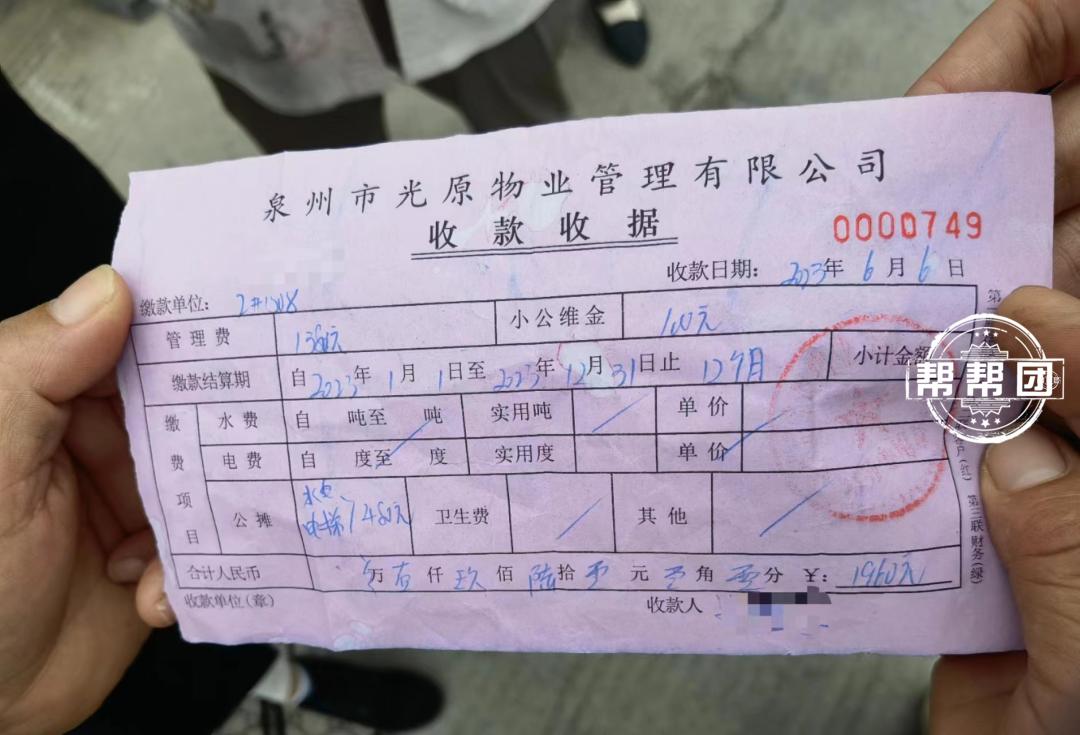 泉州市光原物业管理有限公司
收款收据
0000749
收款日期: 2023年 6月 6日
缴款单位: 2#1308
管理费 1380元 小公维金 100元
缴款结算期 自2023年1月1日至2023年12月31日止 12个月 小计金额
缴费项目 水费 自 吨至 吨 实用吨 单价
电费 自 度至 度 实用度 单价
公摊 水电、电梯/480元 卫生费 其他
合计人民币 万壹仟玖佰陆拾零元零角零分 ¥: 1960元
收款单位(章) 收款人
第三联财务(绿)
帮帮团